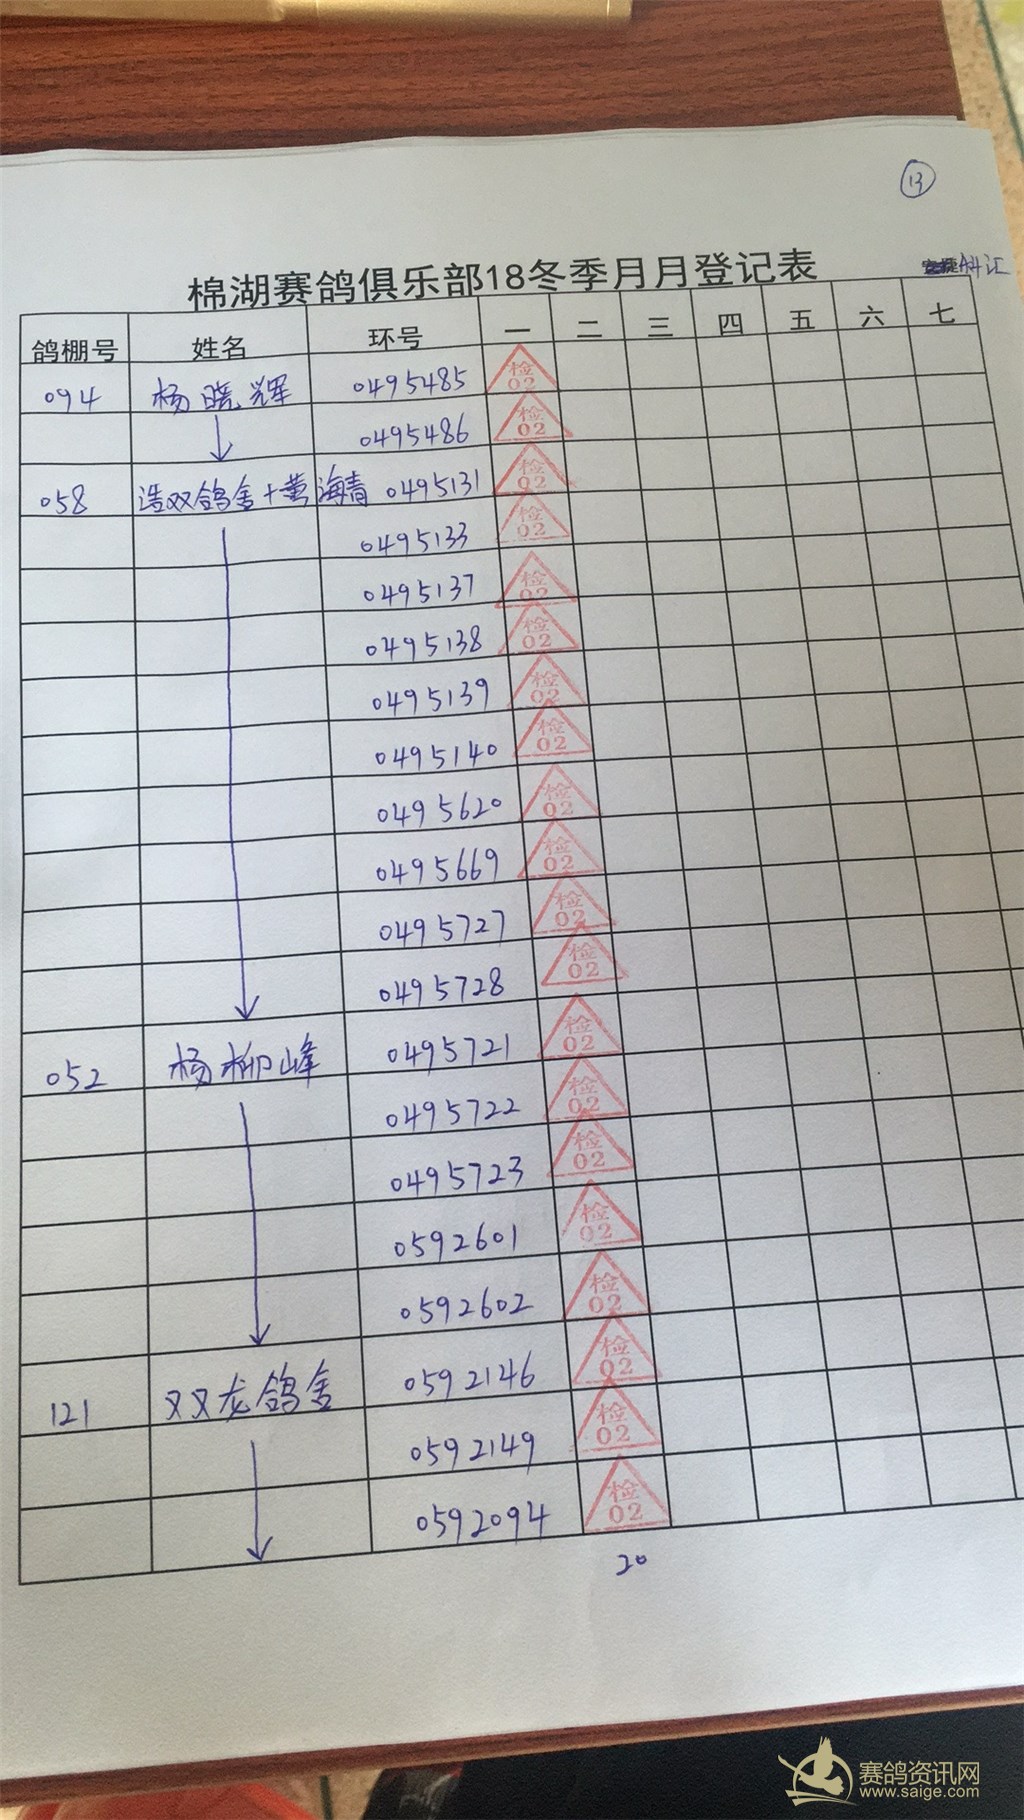 13
棉湖赛鸽俱乐部18冬季月月登记表
鸽棚号 姓名 环号 一 二 三 四 五 六 七
094 杨晓辉 0495485 检02
0495486 检02
058 浩双鸽舍+黄海青 0495131 检02
0495133 检02
0495137 检02
0495138 检02
0495139 检02
0495140 检02
0495620 检02
0495669 检02
0495727 检02
0495728 检02
052 杨柳峰 0495721 检02
0495722 检02
0495723 检02
0592601 检02
0592602 检02
121 双龙鸽舍 0592146 检02
0592149 检02
0592094 检02
20
赛鸽资讯网
www.saige.com